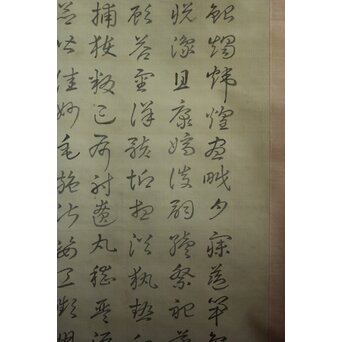 銀燭煒煌晝眠夕寐藍笋
悅豫且康嫡後嗣續祭祀
顧答審詳骸垢想浴執熱
捕獲叛亡布射遼丸嵇琴
皆佳妙毛施淑姿工顰